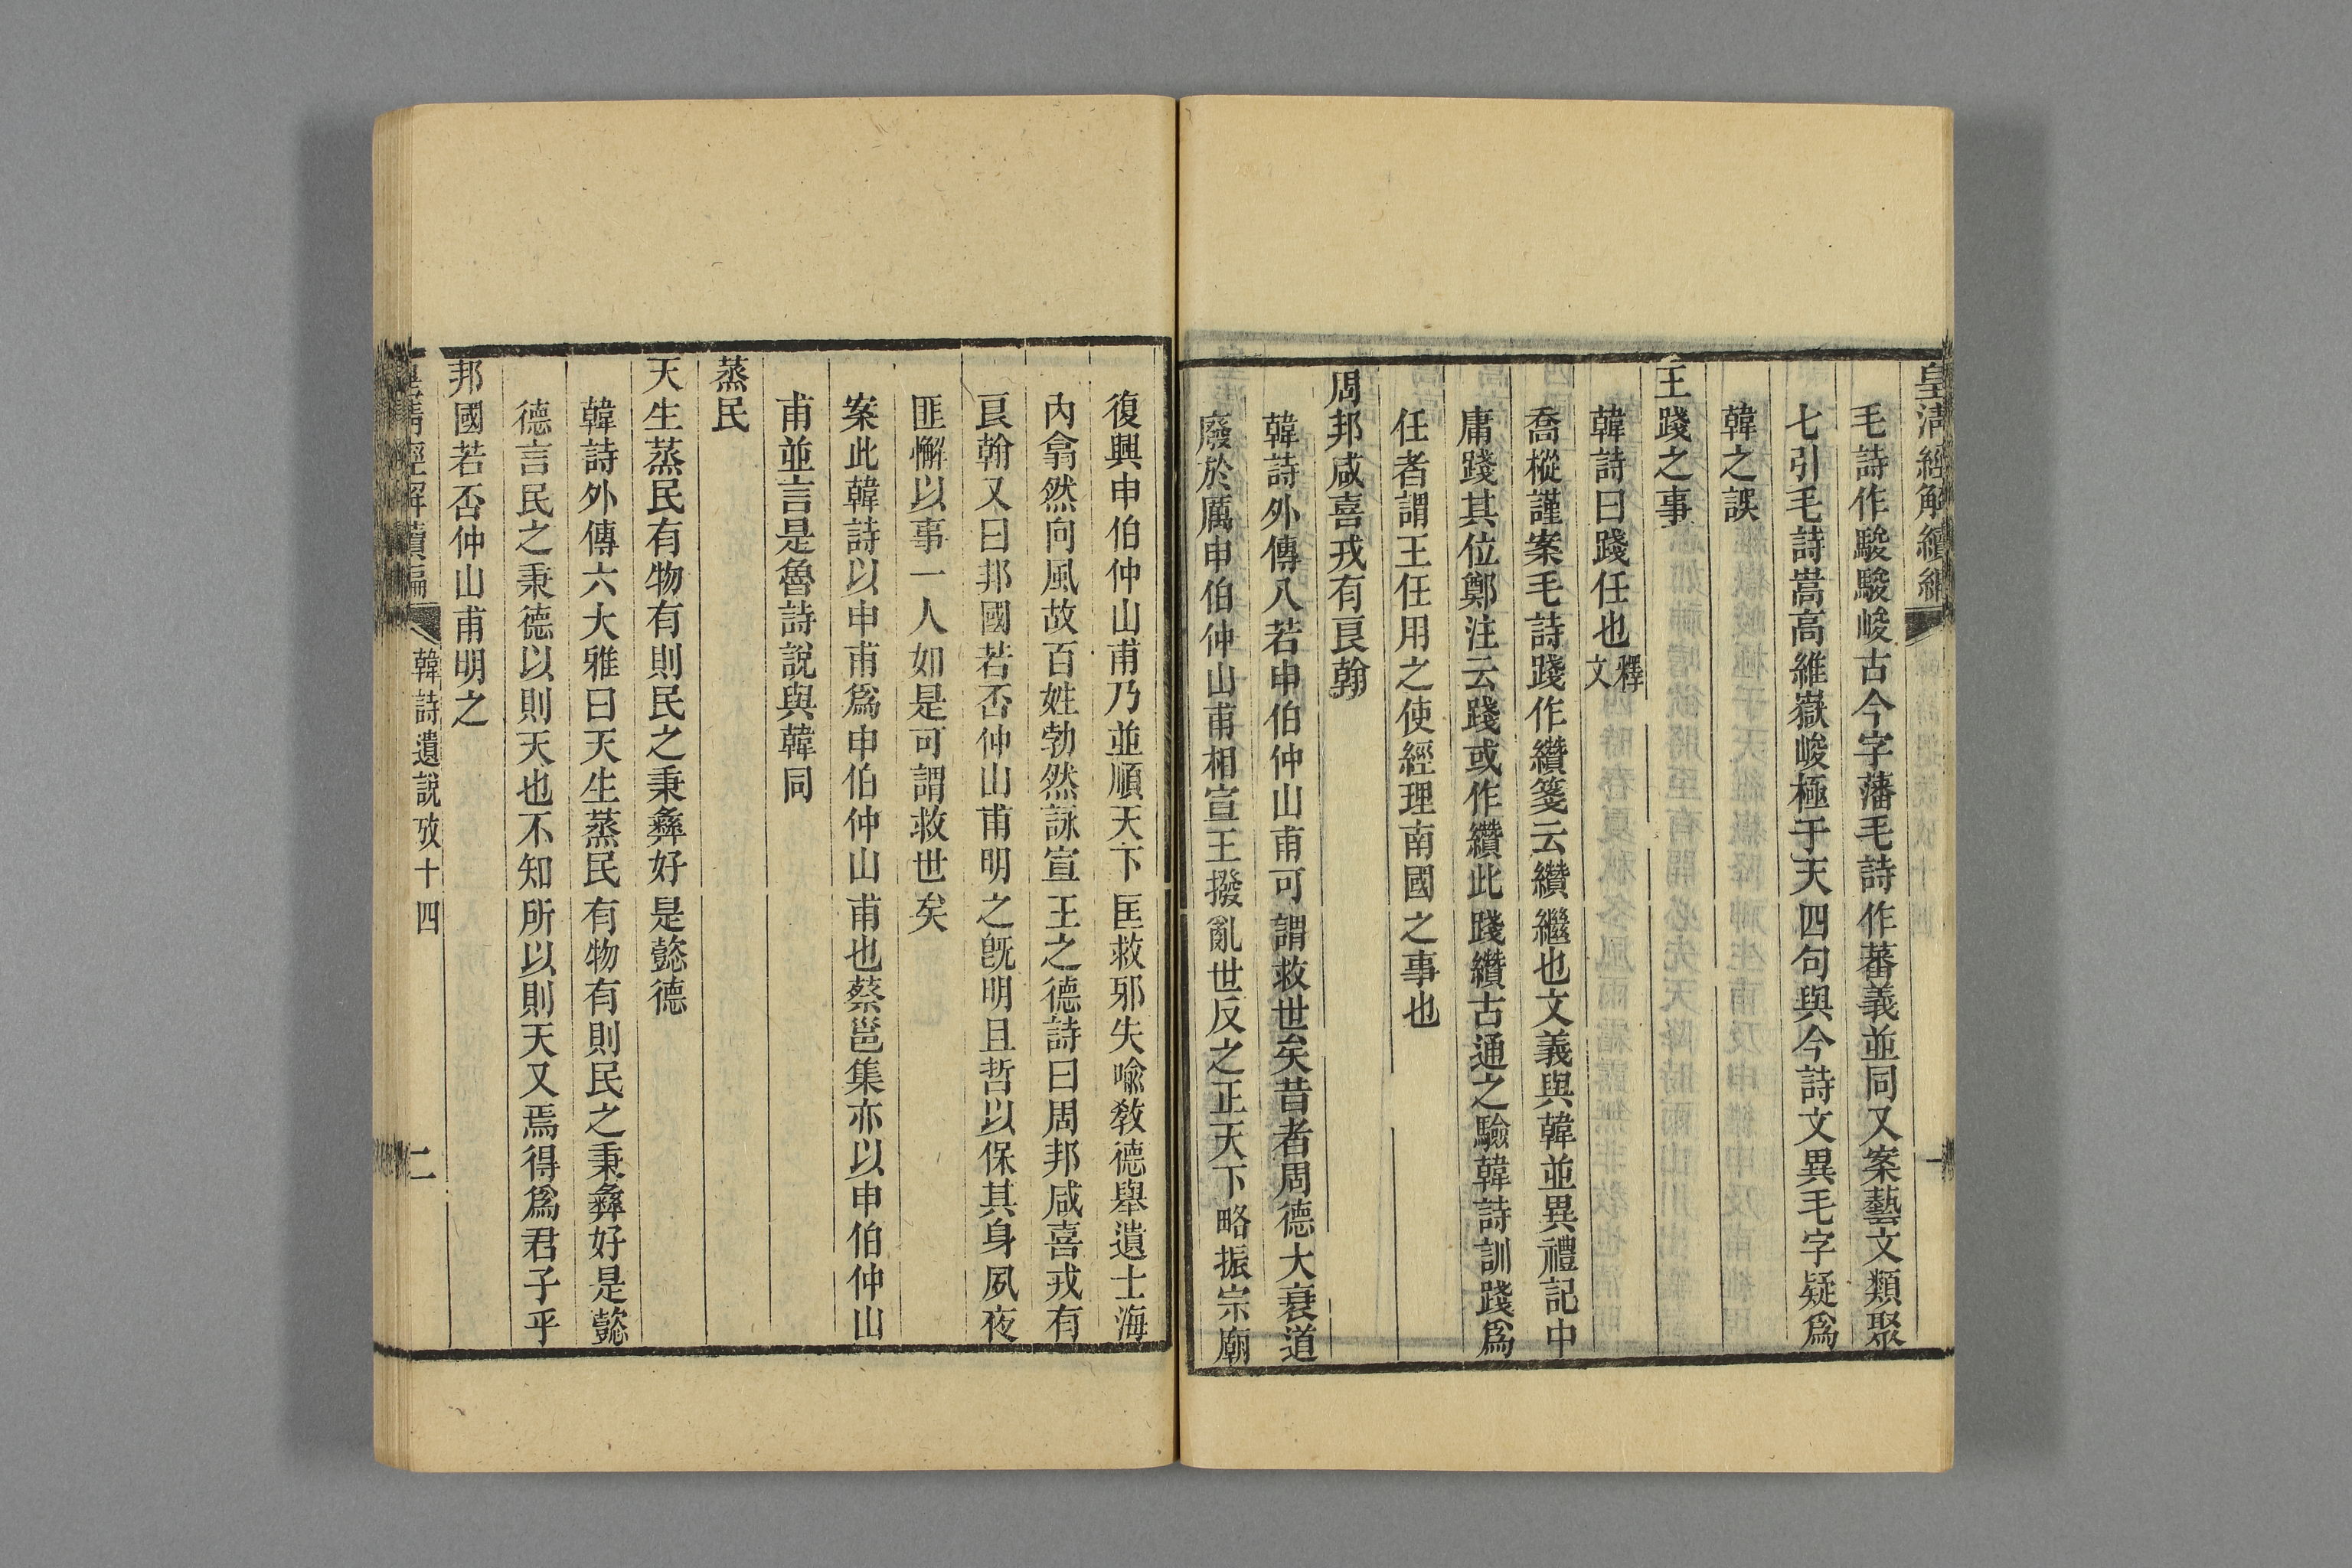 皇清經解續編
一
毛詩作駿駿峻古今字藩毛詩作蕃義並同又案藝文類聚
七引毛詩嵩高維嶽峻極于天四句與今詩文異毛字疑爲
韓之誤
王踐之事
韓詩曰踐任也釋文
喬樅謹案毛詩踐作纘箋云纘繼也文義與韓並異禮記中
庸踐其位鄭注云踐或作纘此踐纘古通之驗韓詩訓踐爲
任者謂王任用之使經理南國之事也
周邦咸喜戎有良翰
韓詩外傳八若申伯仲山甫可謂救世矣昔者周德大衰道
廢於厲申伯仲山甫相宣王撥亂世反之正天下略振宗廟
復興申伯仲山甫乃並順天下匡救邪失喻敎德舉遺士海
內翕然向風故百姓勃然詠宣王之德詩曰周邦咸喜戎有
良翰又曰邦國若否仲山甫明之旣明且哲以保其身夙夜
匪懈以事一人如是可謂救世矣
案此韓詩以申甫爲申伯仲山甫也蔡邕集亦以申伯仲山
甫並言是魯詩說與韓同
蒸民
天生蒸民有物有則民之秉彝好是懿德
韓詩外傳六大雅曰天生蒸民有物有則民之秉彝好是懿
德言民之秉德以則天也不知所以則天又焉得爲君子乎
邦國若否仲山甫明之
皇清經解續編
韓詩遺說攷十四
二